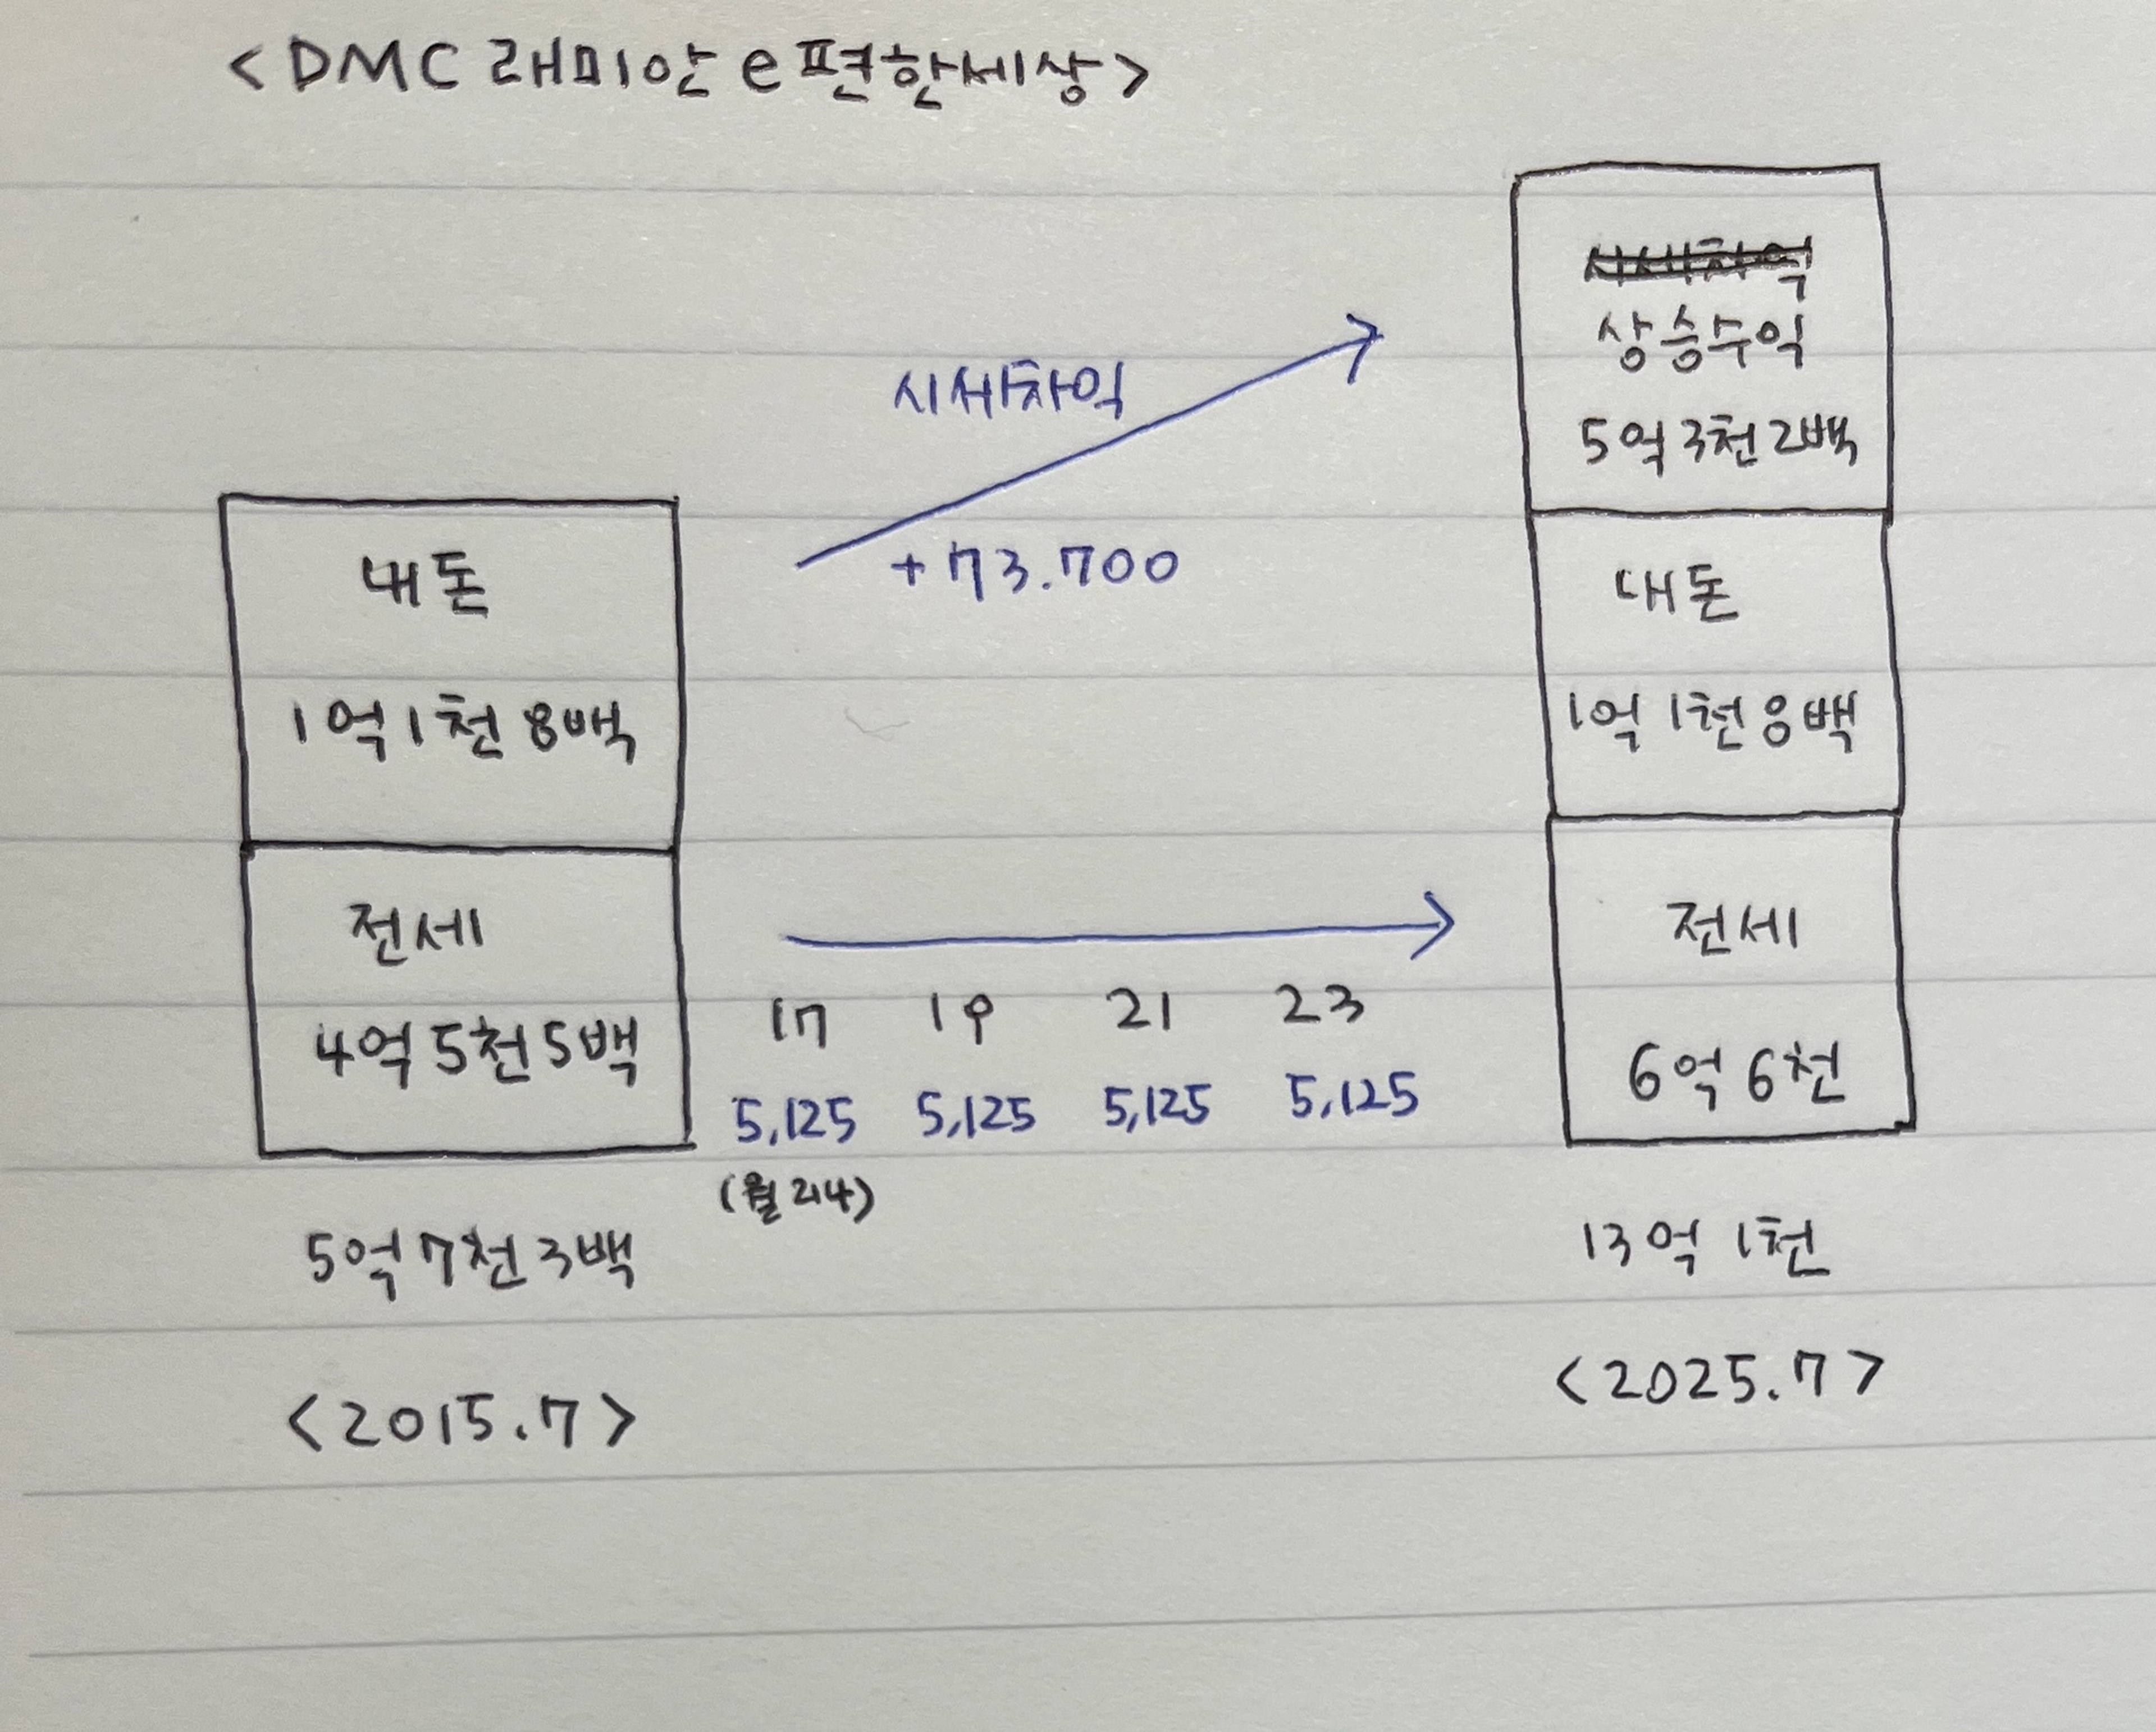 <DMC 래미안 e편한세상>
시세차익
상승수익
5억 3천 2백
시세차익
+73.700
내돈
1억 1천 8백
내돈
1억 1천 8백
전세
4억 5천 5백
17 19 21 23
5,125 5,125 5,125 5,125
(월214)
전세
6억 6천
5억 7천 3백
13억 1천
<2015.7>
<2025.7>